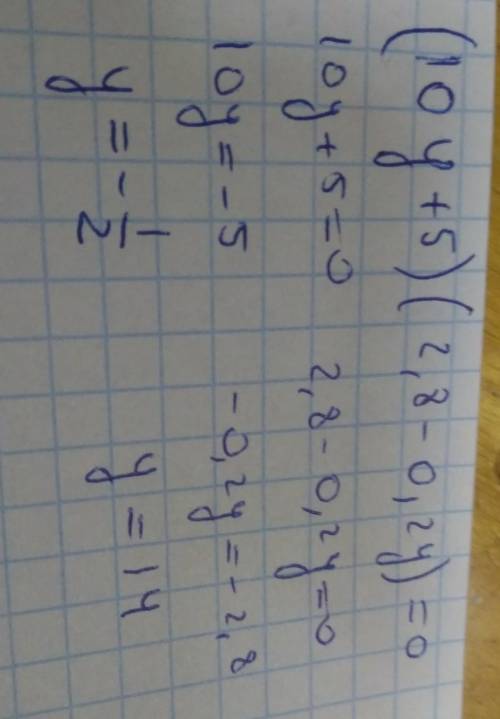 (10y+5)(2,8-0,2y)=0
10y+5=0 2,8-0,2y=0
10y=-5 -0,2y=-2,8
y=-1/2 y=14